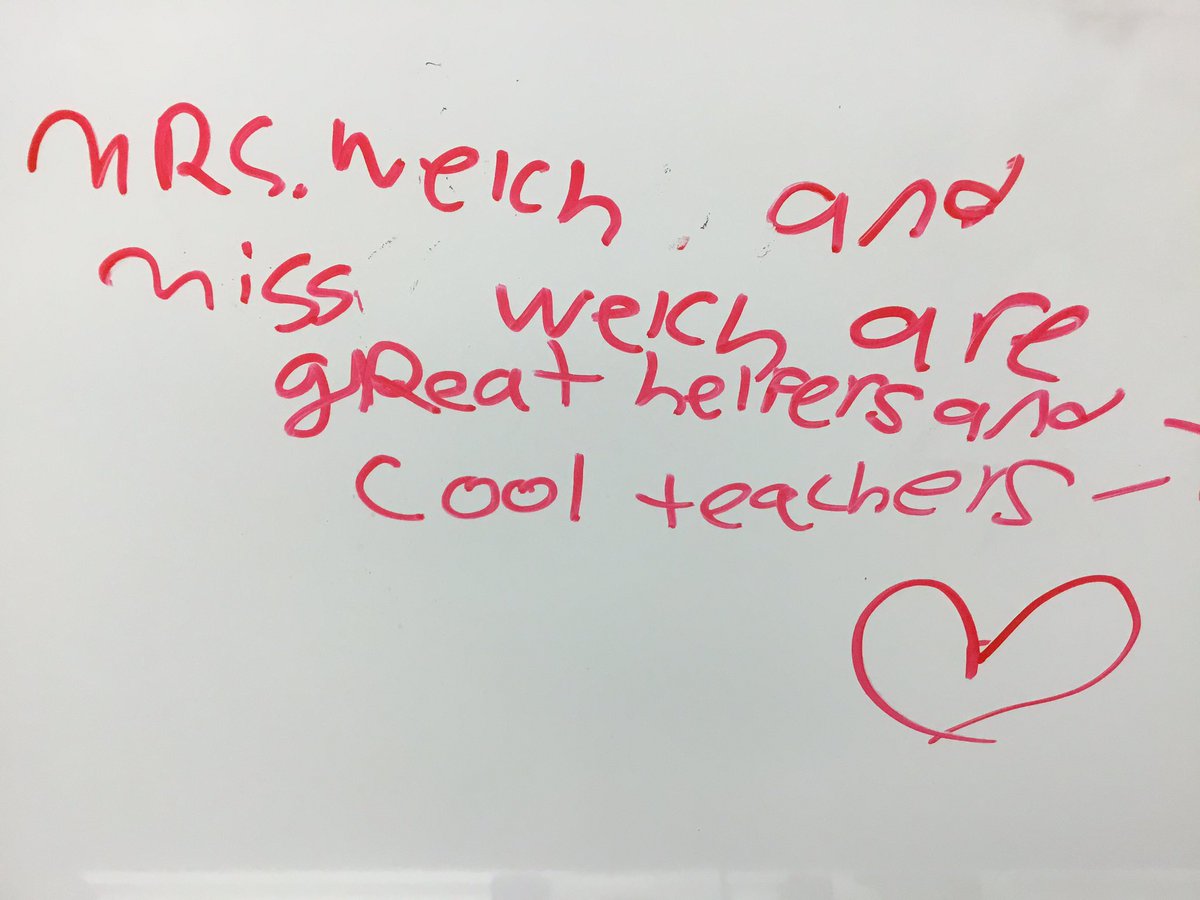 MRS. Welch and
Miss. Welch are
gReat helpers and
Cool teachers -